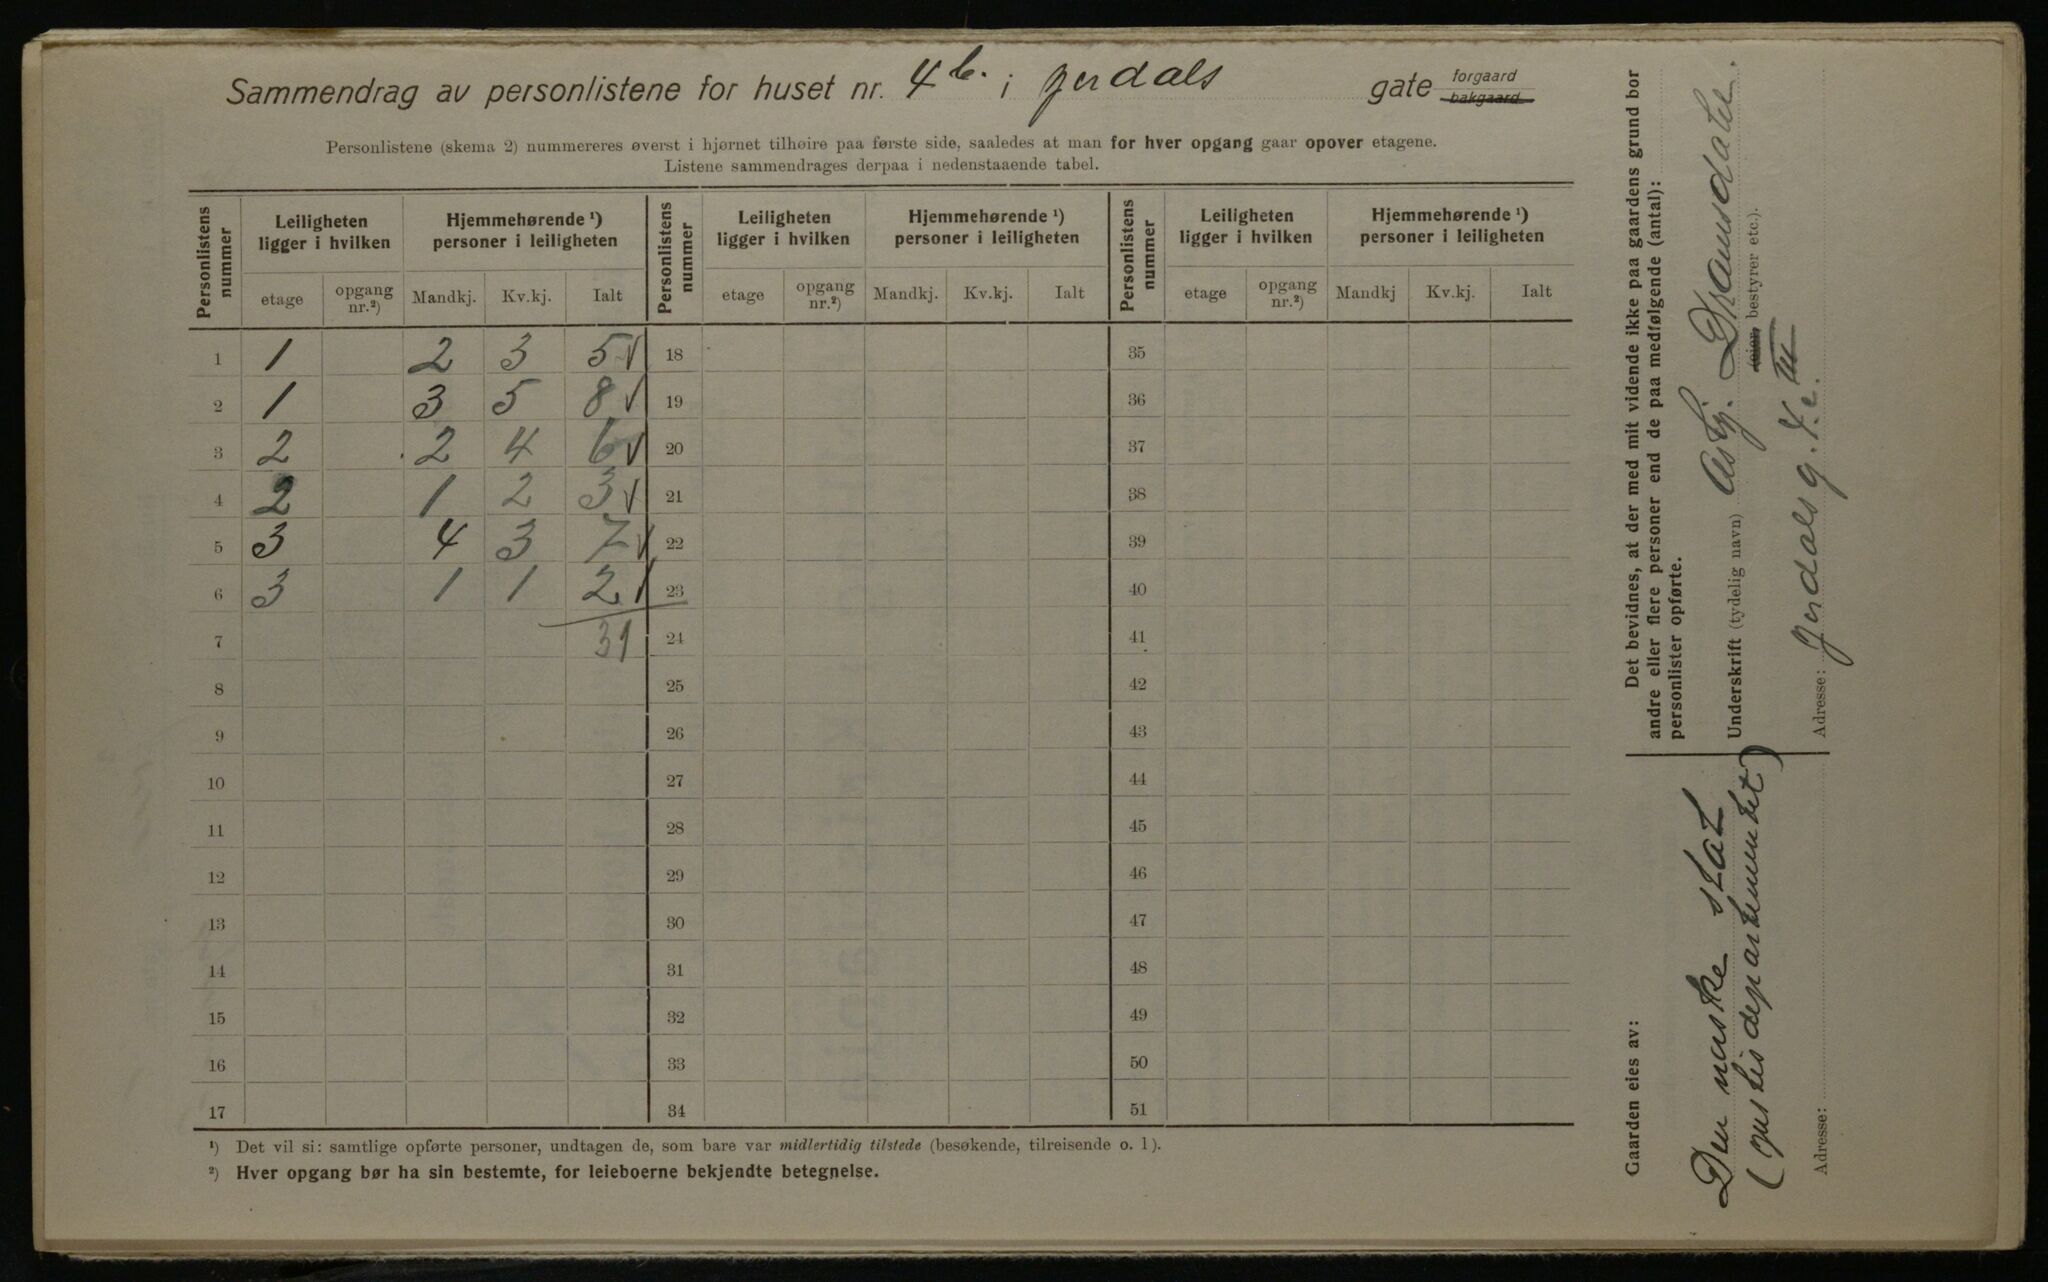 Sammendrag av personlistene for huset nr. 4 b. i Jerdals gate forgaard bakgaard
Personlistene (skema 2) nummereres øverst i hjørnet tilhøire paa første side, saaledes at man for hver opgang gaar opover etagene.
Listene sammendrages derpaa i nedenstaaende tabel.
Personlistens nummer | Leiligheten ligger i hvilken | Hjemmehørende ¹) personer i leiligheten | Personlistens nummer | Leiligheten ligger i hvilken | Hjemmehørende ¹) personer i leiligheten | Personlistens nummer | Leiligheten ligger i hvilken | Hjemmehørende ¹) personer i leiligheten
etage | opgang nr.²) | Mandkj. | Kv.kj. | Ialt | etage | opgang nr.²) | Mandkj. | Kv.kj. | Ialt | etage | opgang nr.²) | Mandkj | Kv.kj. | Ialt
1 | 1 | 2 | 3 | 5 √ | 18 | 35
2 | 1 | 3 | 5 | 8 √ | 19 | 36
3 | 2 | 2 | 4 | 6 √ | 20 | 37
4 | 2 | 1 | 2 | 3 √ | 21 | 38
5 | 3 | 4 | 3 | 7 √ | 22 | 39
6 | 3 | 1 | 1 | 2 √ | 23 | 40
7 | 31 | 24 | 41
8 | 25 | 42
9 | 26 | 43
10 | 27 | 44
11 | 28 | 45
12 | 29 | 46
13 | 30 | 47
14 | 31 | 48
15 | 32 | 49
16 | 33 | 50
17 | 34 | 51
¹) Det vil si: samtlige opførte personer, undtagen de, som bare var midlertidig tilstede (besøkende, tilreisende o. l).
²) Hver opgang bør ha sin bestemte, for leieboerne bekjendte betegnelse.
Det bevidnes, at der med mit vidende ikke paa gaardens grund bor
andre eller flere personer end de paa medfølgende (antal):
personlister opførte.
Underskrift (tydelig navn) Asbj. Dramsdahl.
(eier, bestyrer etc.).
Adresse: Jerdals g. 4c. III
Gaarden eies av:
Den norske stat
(Justisdepartementet)
Adresse: